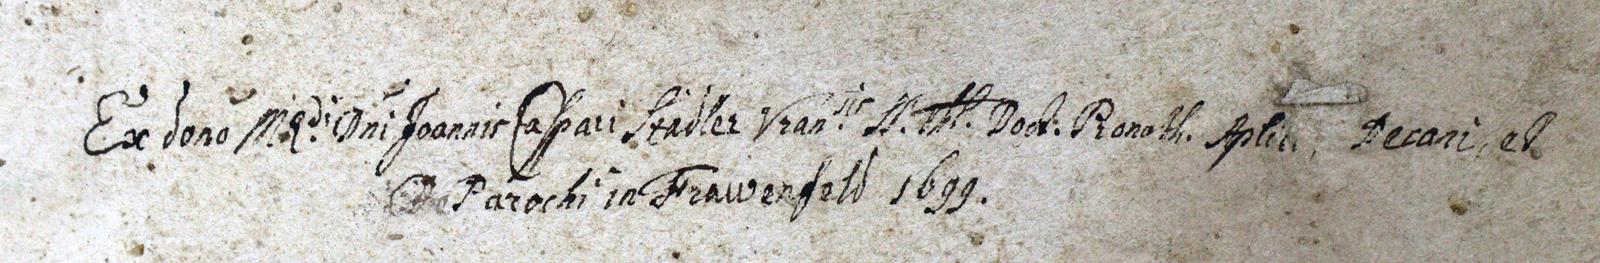 Ex dono Mgdi Dni Joannis Caspari Stadler Vran.tis SS. Th. Doct. Pronoth. Aplici, Decani, et
Parochi in Frawenfeld 1699.